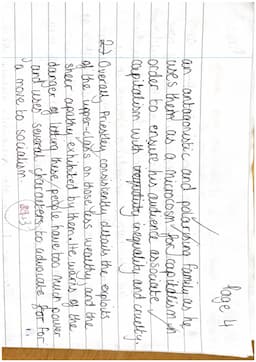 Page 4
an antagonistic and polarising family as he
uses them as a microcosm for capitalism in
order to ensure his audience associate
capitalism with inequality and cruelty.
2) Overall, Priestley consistently details the exploits
of the upper-class on those less wealthy and the
sheer apathy exhibited by them. He warns of the
danger of letting these people have too much power
and uses several characters to advocate for for
a move to socialism.